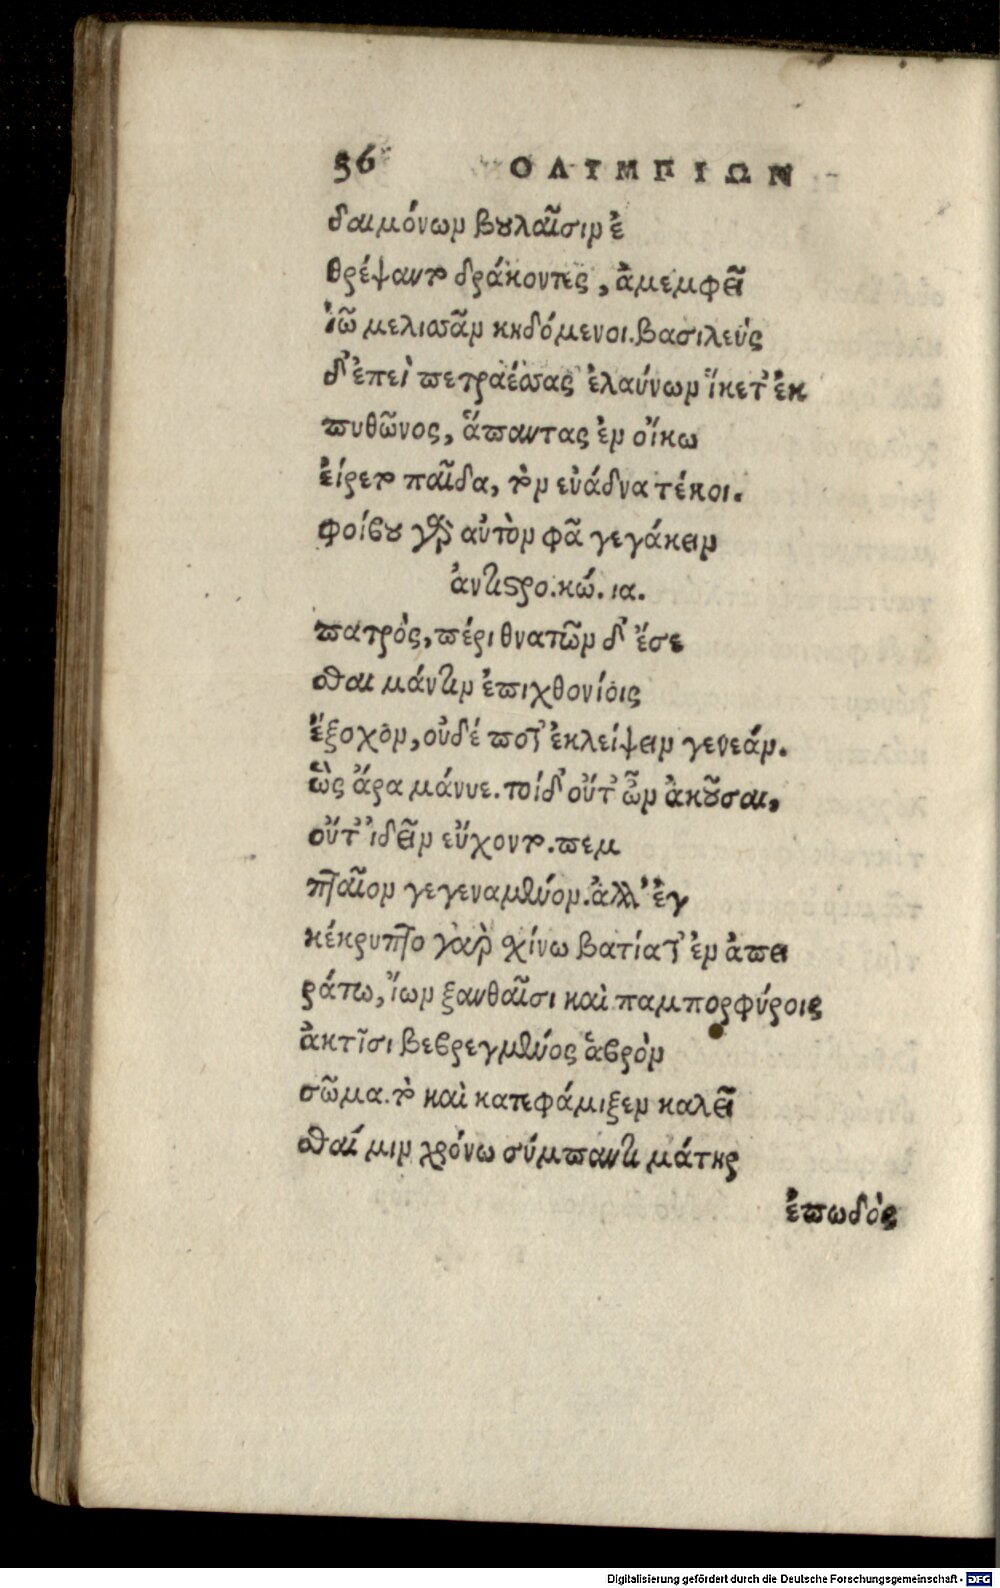 36 ΟΛΥΜΠΙΩΝ
δαιμόνων βουλαῖσιν ἐ
θρέψαντο δράκοντες, ἀμεμφεῖ
ἰῷ μελισσᾶν κηδόμενοι. βασιλεὺς
δ' ἐπεὶ πετραέσσας ἐλαύνων ἵκετ' ἐκ
πυθῶνος, ἅπαντας ἐν οἴκω
εἴρετο παῖδα, τὸν εὐάδνα τέκοι.
φοίβου γὰρ αὐτὸν φᾶ γεγάκειν
ἀντιστρο. κώ. ια.
πατρὸς, πέρι θνατῶν δ' ἔσε
σθαι μάντιν ἐπιχθονίοις
ἔξοχον, οὐδέ ποτ' ἐκλείψειν γενεάν.
ὣς ἄρα μάνυε. τοὶ δ' οὔτ' ὦν ἀκοῦσαι,
οὔτ' ἰδεῖν εὔχοντο. πεμ
πταῖον γεγεναμένον. ἀλλ' ἐγ
κέκρυπτο γὰρ σχίνω βατία τ' ἐν ἀπει
ράτω, ἴων ξανθαῖσι καὶ παμπορφύροις
ἀκτῖσι βεβρεγμένος ἁβρὸν
σῶμα. τὸ καὶ κατεφάμιξεν καλεῖ
σθαί μιν χρόνω σύμπαντι μάτηρ
ἐπωδὸς
Digitalisierung gefördert durch die Deutsche Forschungsgemeinschaft - DFG